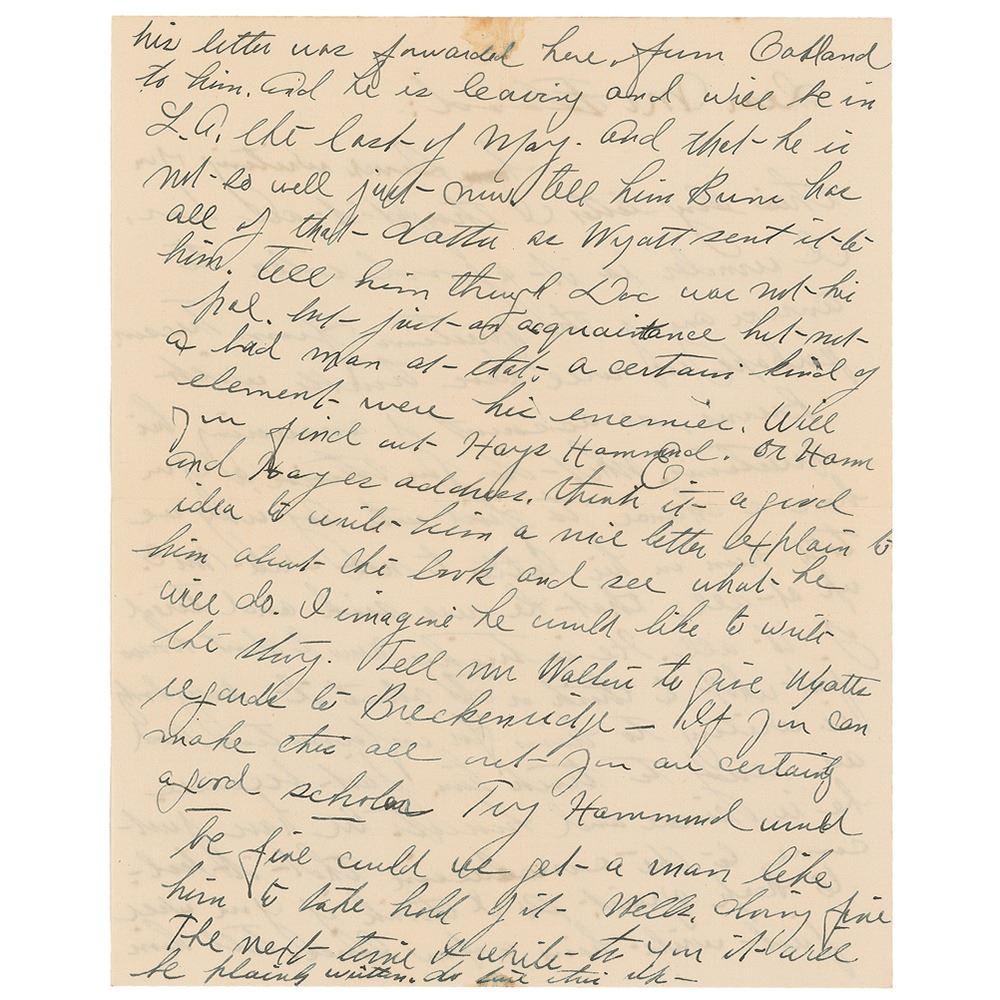 his letter was forwarded here from Oakland
to him. and he is leaving and will be in
L.A. the last of May. and that he is
not so well just now, tell him Burns has
all of that datta as Wyatt sent it to
him. tell him though Doc was not his
pal. but just an acquaintance but not
a bad man at that, a certain kind of
element were his enemies. Will
you find out Hays Hammond. or Hamm
and Hayes address. think it a good
idea to write him a nice letter explain to
him about the book and see what he
will do. I imagine he would like to write
the story. Tell mr to give Wyatts
regards to Breckenridge — If you can
make this all out you are certainly
a good scholar Try Hammond would
be fine could we get a man like
him to take hold of it Wells. doing fine
The next time I write to you it will
be plainly written. do this up